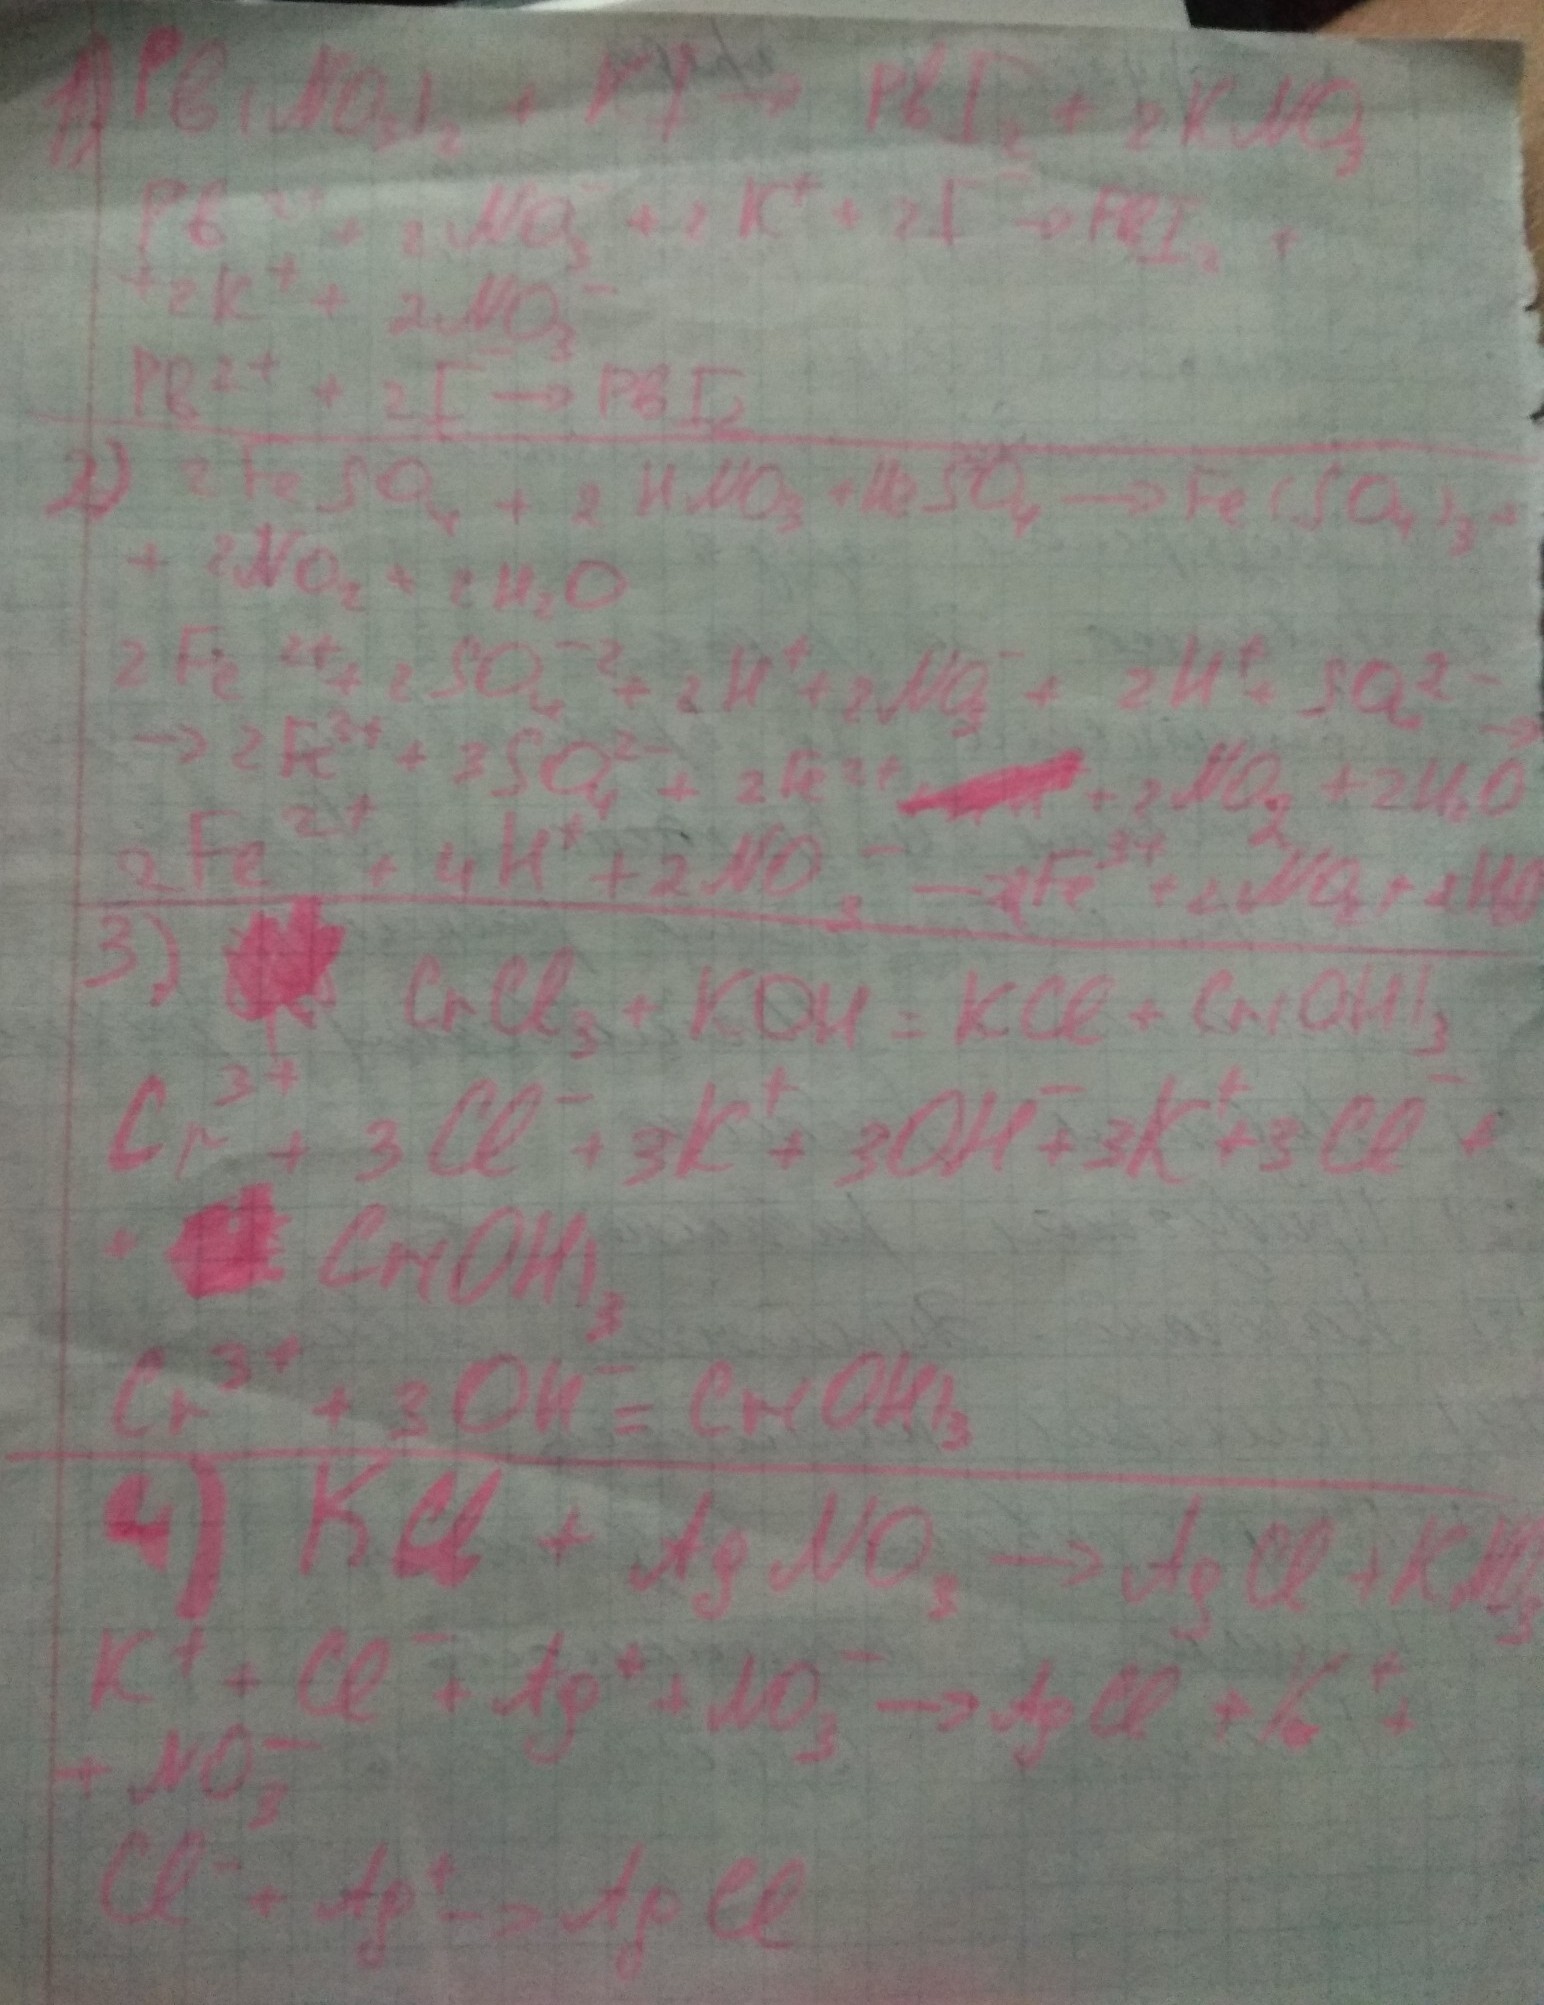 1) Pb(NO₃)₂ + KI → PbI₂ + 2KNO₃
Pb²⁺ + 2NO₃⁻ + 2K⁺ + 2I⁻ → PbI₂ +
+2K⁺ + 2NO₃⁻
Pb²⁺ + 2I⁻ → PbI₂
2) 2FeSO₄ + 2HNO₃ + H₂SO₄ → Fe(SO₄)₃ +
+ 2NO₂ + 2H₂O
2Fe²⁺ + 2SO₄⁻² + 2H⁺ + 2NO₃⁻ + 2H⁺ + SO₄²⁻ →
→ 2Fe³⁺ + 3SO₄²⁻ + 2Fe²⁺ + 2NO₂ + 2H₂O
2Fe²⁺ + 4H⁺ + 2NO₃⁻ → 2Fe³⁺ + 2NO₂ + 2H₂O
3) CrCl₃ + KOH = KCl + Cr(OH)₃
Cr³⁺ + 3Cl⁻ + 3K⁺ + 3OH⁻ + 3K⁺ + 3Cl⁻ +
+ Cr(OH)₃
Cr³⁺ + 3OH⁻ = Cr(OH)₃
4) KCl + AgNO₃ → AgCl + KNO₃
K⁺ + Cl⁻ + Ag⁺ + NO₃⁻ → AgCl + K⁺ +
+ NO₃⁻
Cl⁻ + Ag⁺ → AgCl